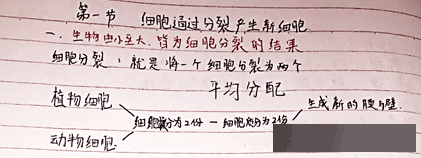 第一节 细胞通过分裂产生新细胞
一、生物由小至大,皆为细胞分裂的结果
细胞分裂:就是将一个细胞分裂为两个
平均分配
植物细胞
细胞 分为2份 — 细胞质分为2份
生成新的膜与壁
动物细胞